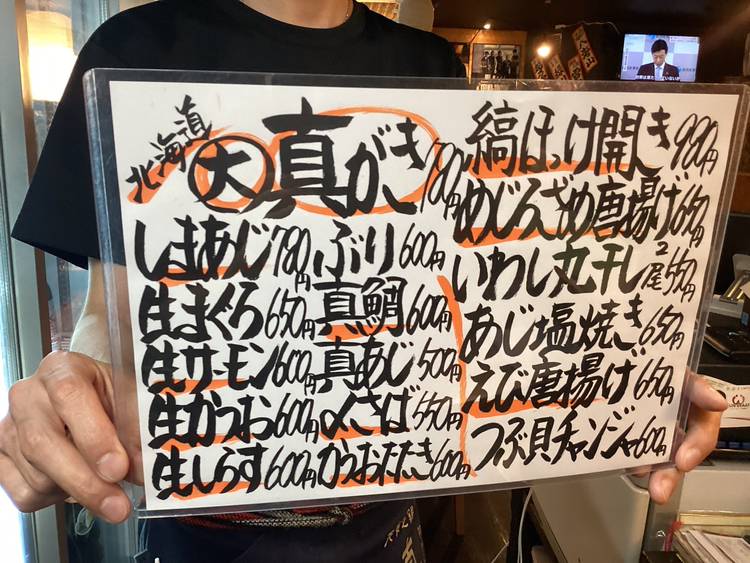 北海道 大 真がき 700円
しまあじ 780円
生まぐろ 650円
生サーモン 600円
生かつお 600円
生しらす 600円
ぶり 600円
真鯛 600円
真あじ 500円
〆さば 550円
かつおたたき 600円
縞ほっけ開き 980円
めじろざめ唐揚げ 650円
いわし丸干し 2尾 550円
あじ塩焼き 650円
えび唐揚げ 650円
つぶ貝チャンジャ 600円